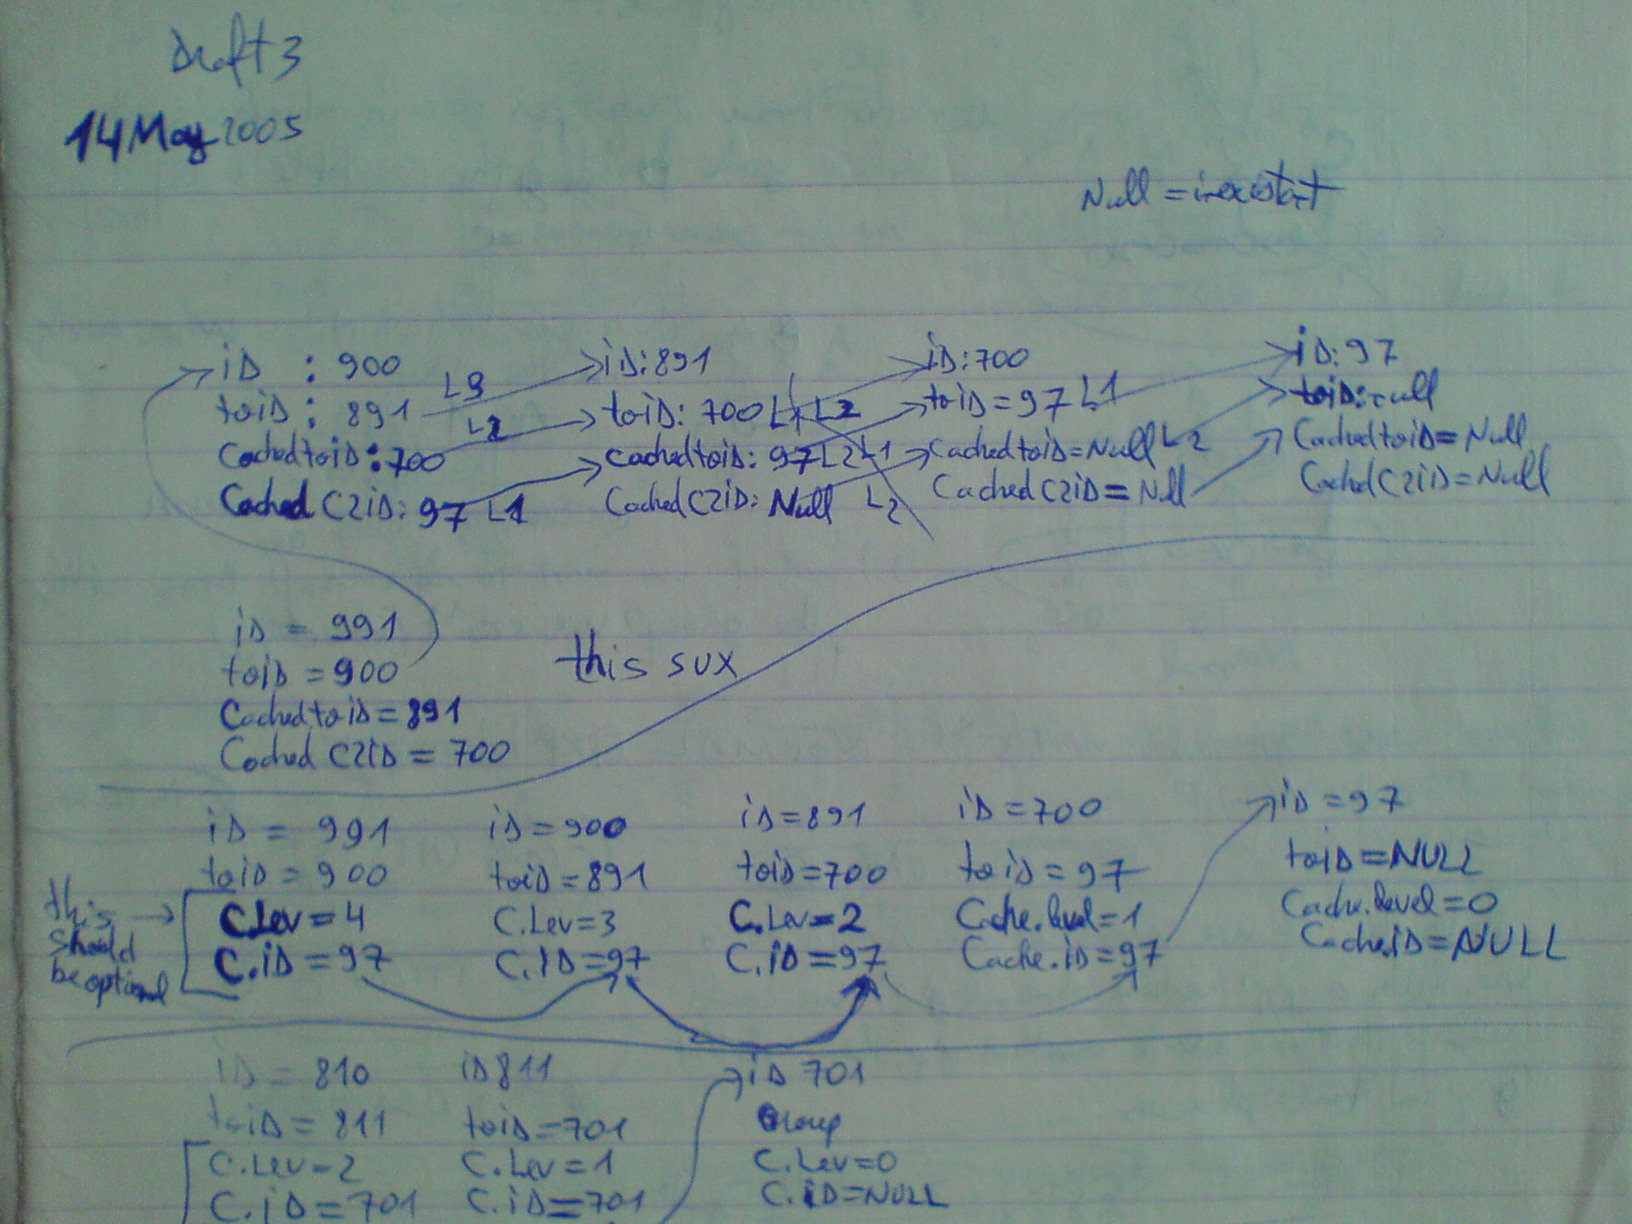 Draft 3
14 May 2005
Null = inexistant
iD : 900
toiD : 891 L3
CachedtoiD: 700 L2
Cached C2iD: 97 L1
iD: 891
toiD: 700 L1 L2
cachedtoiD: 97 L2 L1
Cached C2iD: Null L2
iD: 700
toiD = 97 L1
CachedtoiD = Null L2
Cached C2iD = Null
iD: 97
toiD: null
CachedtoiD = Null
Cached C2iD = Null
iD = 991
toiD = 900
CachedtoiD = 891
Cached C2iD = 700
this sux
this should be optional
iD = 991
toiD = 900
C.Lev = 4
C.iD = 97
iD = 900
toiD = 891
C.Lev = 3
C.iD = 97
iD = 891
toiD = 700
C.Lev = 2
C.iD = 97
iD = 700
toiD = 97
Cache.level = 1
Cache.iD = 97
iD = 97
toiD = NULL
Cache.level = 0
Cache.iD = NULL
iD = 810
toiD = 811
C.Lev = 2
C.iD = 701
iD 811
toiD = 701
C.Lev = 1
C.iD = 701
iD 701
Group
C.Lev = 0
C.iD = NULL